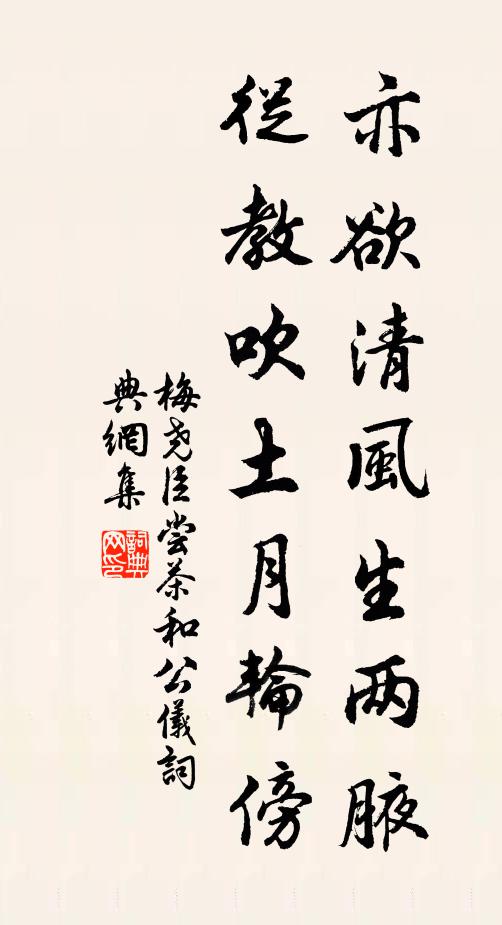 亦欲清風生两腋
從教吹土月輪傍
梅堯臣嘗茶和公儀詞
典網集
詞典网印